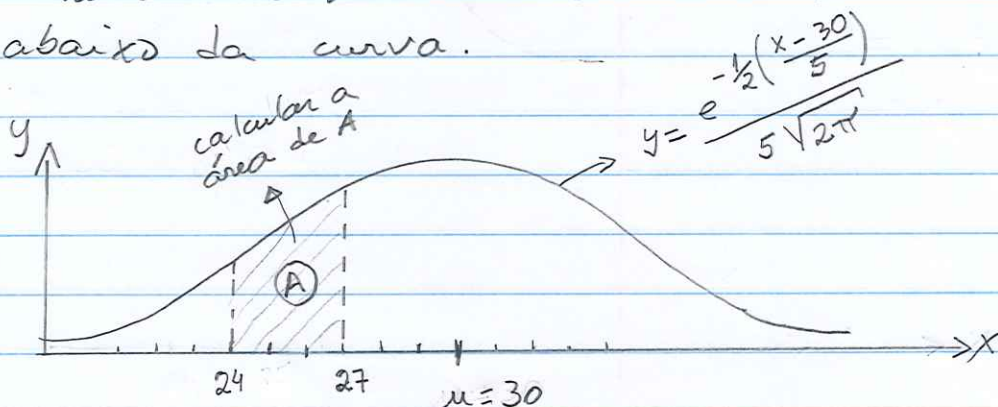 abaixo da curva.
calcular a
área de A
y
y = e^{-½(\frac{x-30}{5})} / 5√2π
A
24 27 μ=30 x